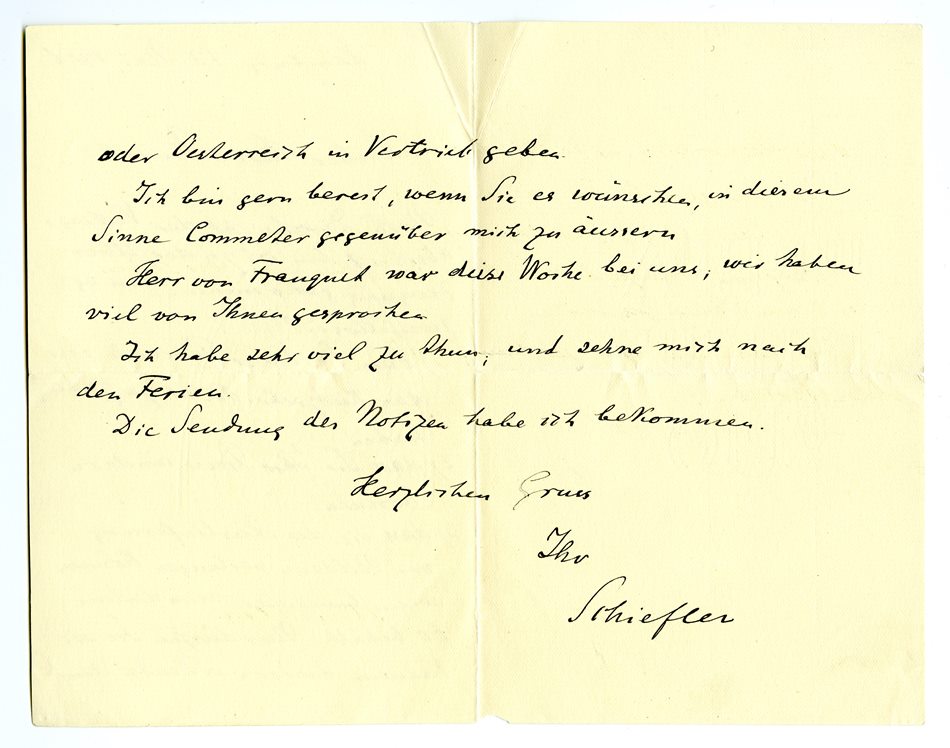 oder Oesterreich in Vertrieb geben.
Ich bin gern bereit, wenn Sie es wünschen, in diesem
Sinne Commeter gegenüber mich zu äussern
Herr von Franquet war diese Woche bei uns; wir haben
viel von Ihnen gesprochen
Ich habe sehr viel zu thun; und sehne mich nach
den Ferien.
Die Sendung der Notizen habe ich bekommen.
Herzlichen Gruss
Ihr
Schiefler